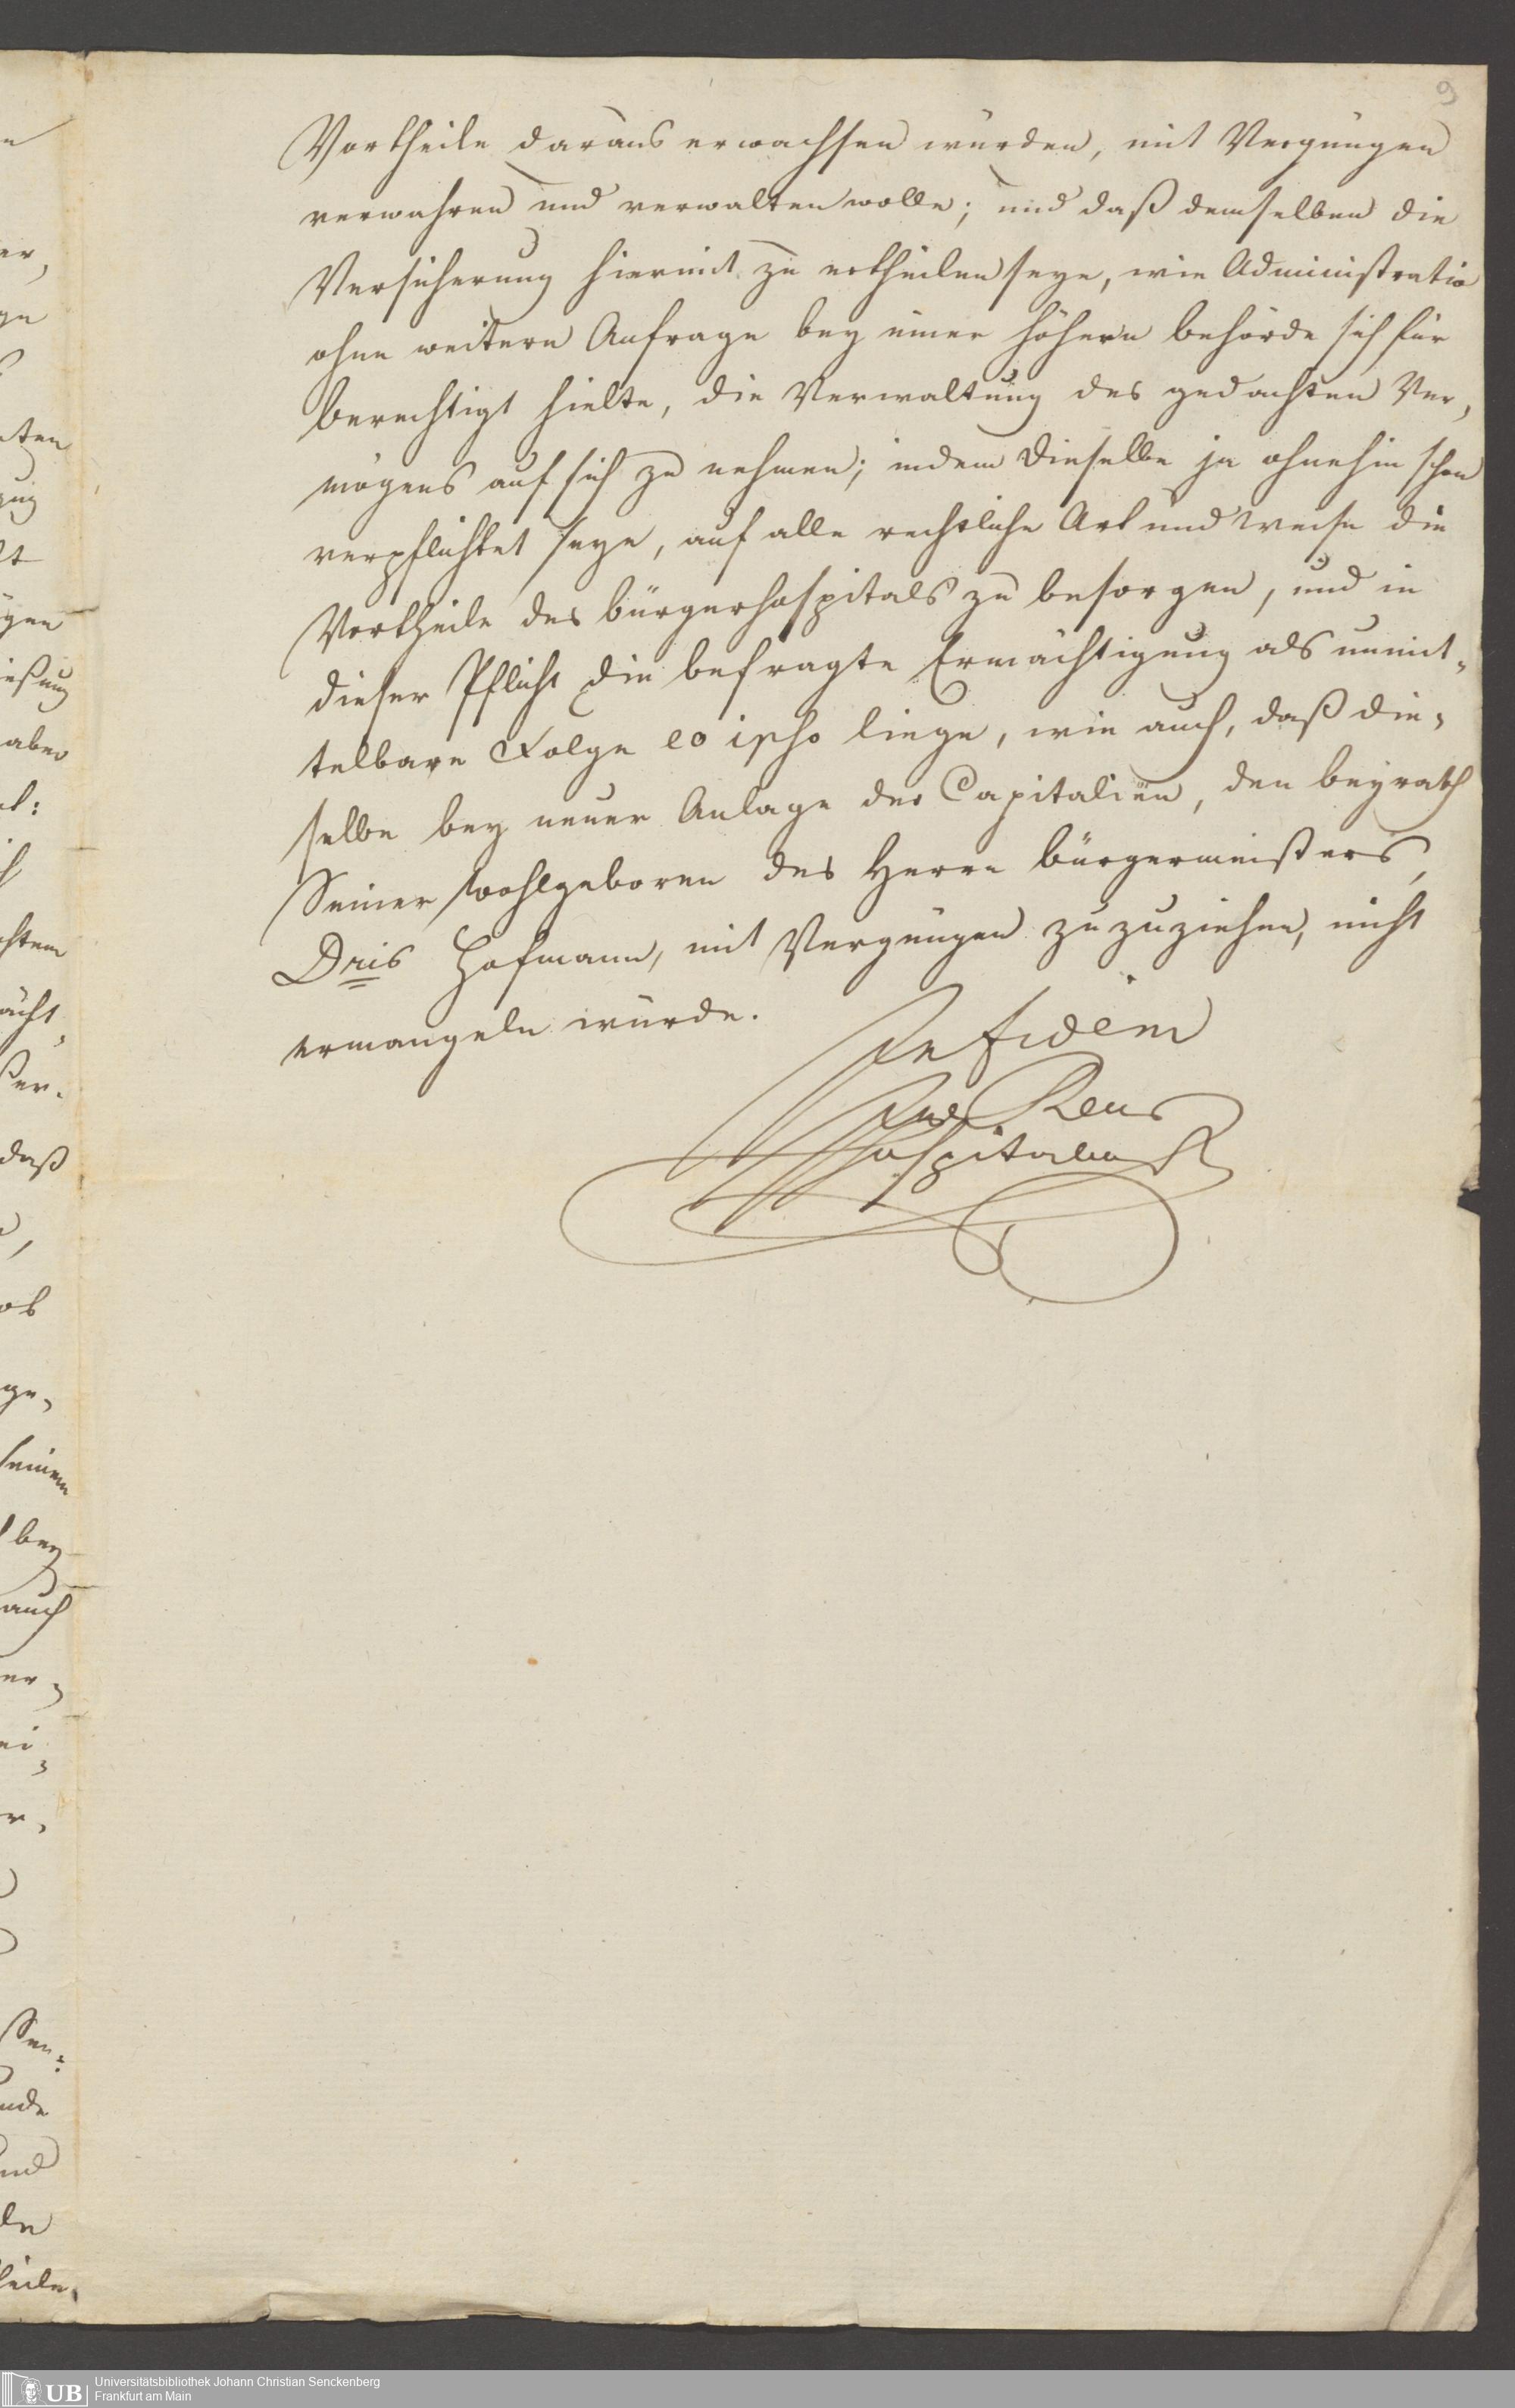 9
Vortheile daraus erwachsen würden, mit Vergnügen
verwahren und verwalten wolle; und daß demselben die
Versicherung hiermit zu ertheilen seye, wie Administratio
ohne weitere Anfrage bey einer höhern behörde sich für
berechtigt hielte, die Verwaltung des gedachten Ver,
mögens auf sich zu nehmen; indem dieselbe ja ohnehin schon
verpflichtet seye, auf alle rechtliche Art und Weise die
Vortheile des bürgerhospitals zu besorgen, und in
dieser Pflicht die befragte Ermächtigung als unmit„
telbare Folge eo ipso liege, wie auch, daß die„
selbe bey neuer Anlage der Capitalien, den beyrath
Seiner Wohlgeboren des Herrn bürgermeisters,
Dris Hofmann, mit Vergnügen zuzuziehen, nicht
ermangeln würde.
In fidem
Hospitalmstr
UB Universitätsbibliothek Johann Christian Senckenberg
Frankfurt am Main